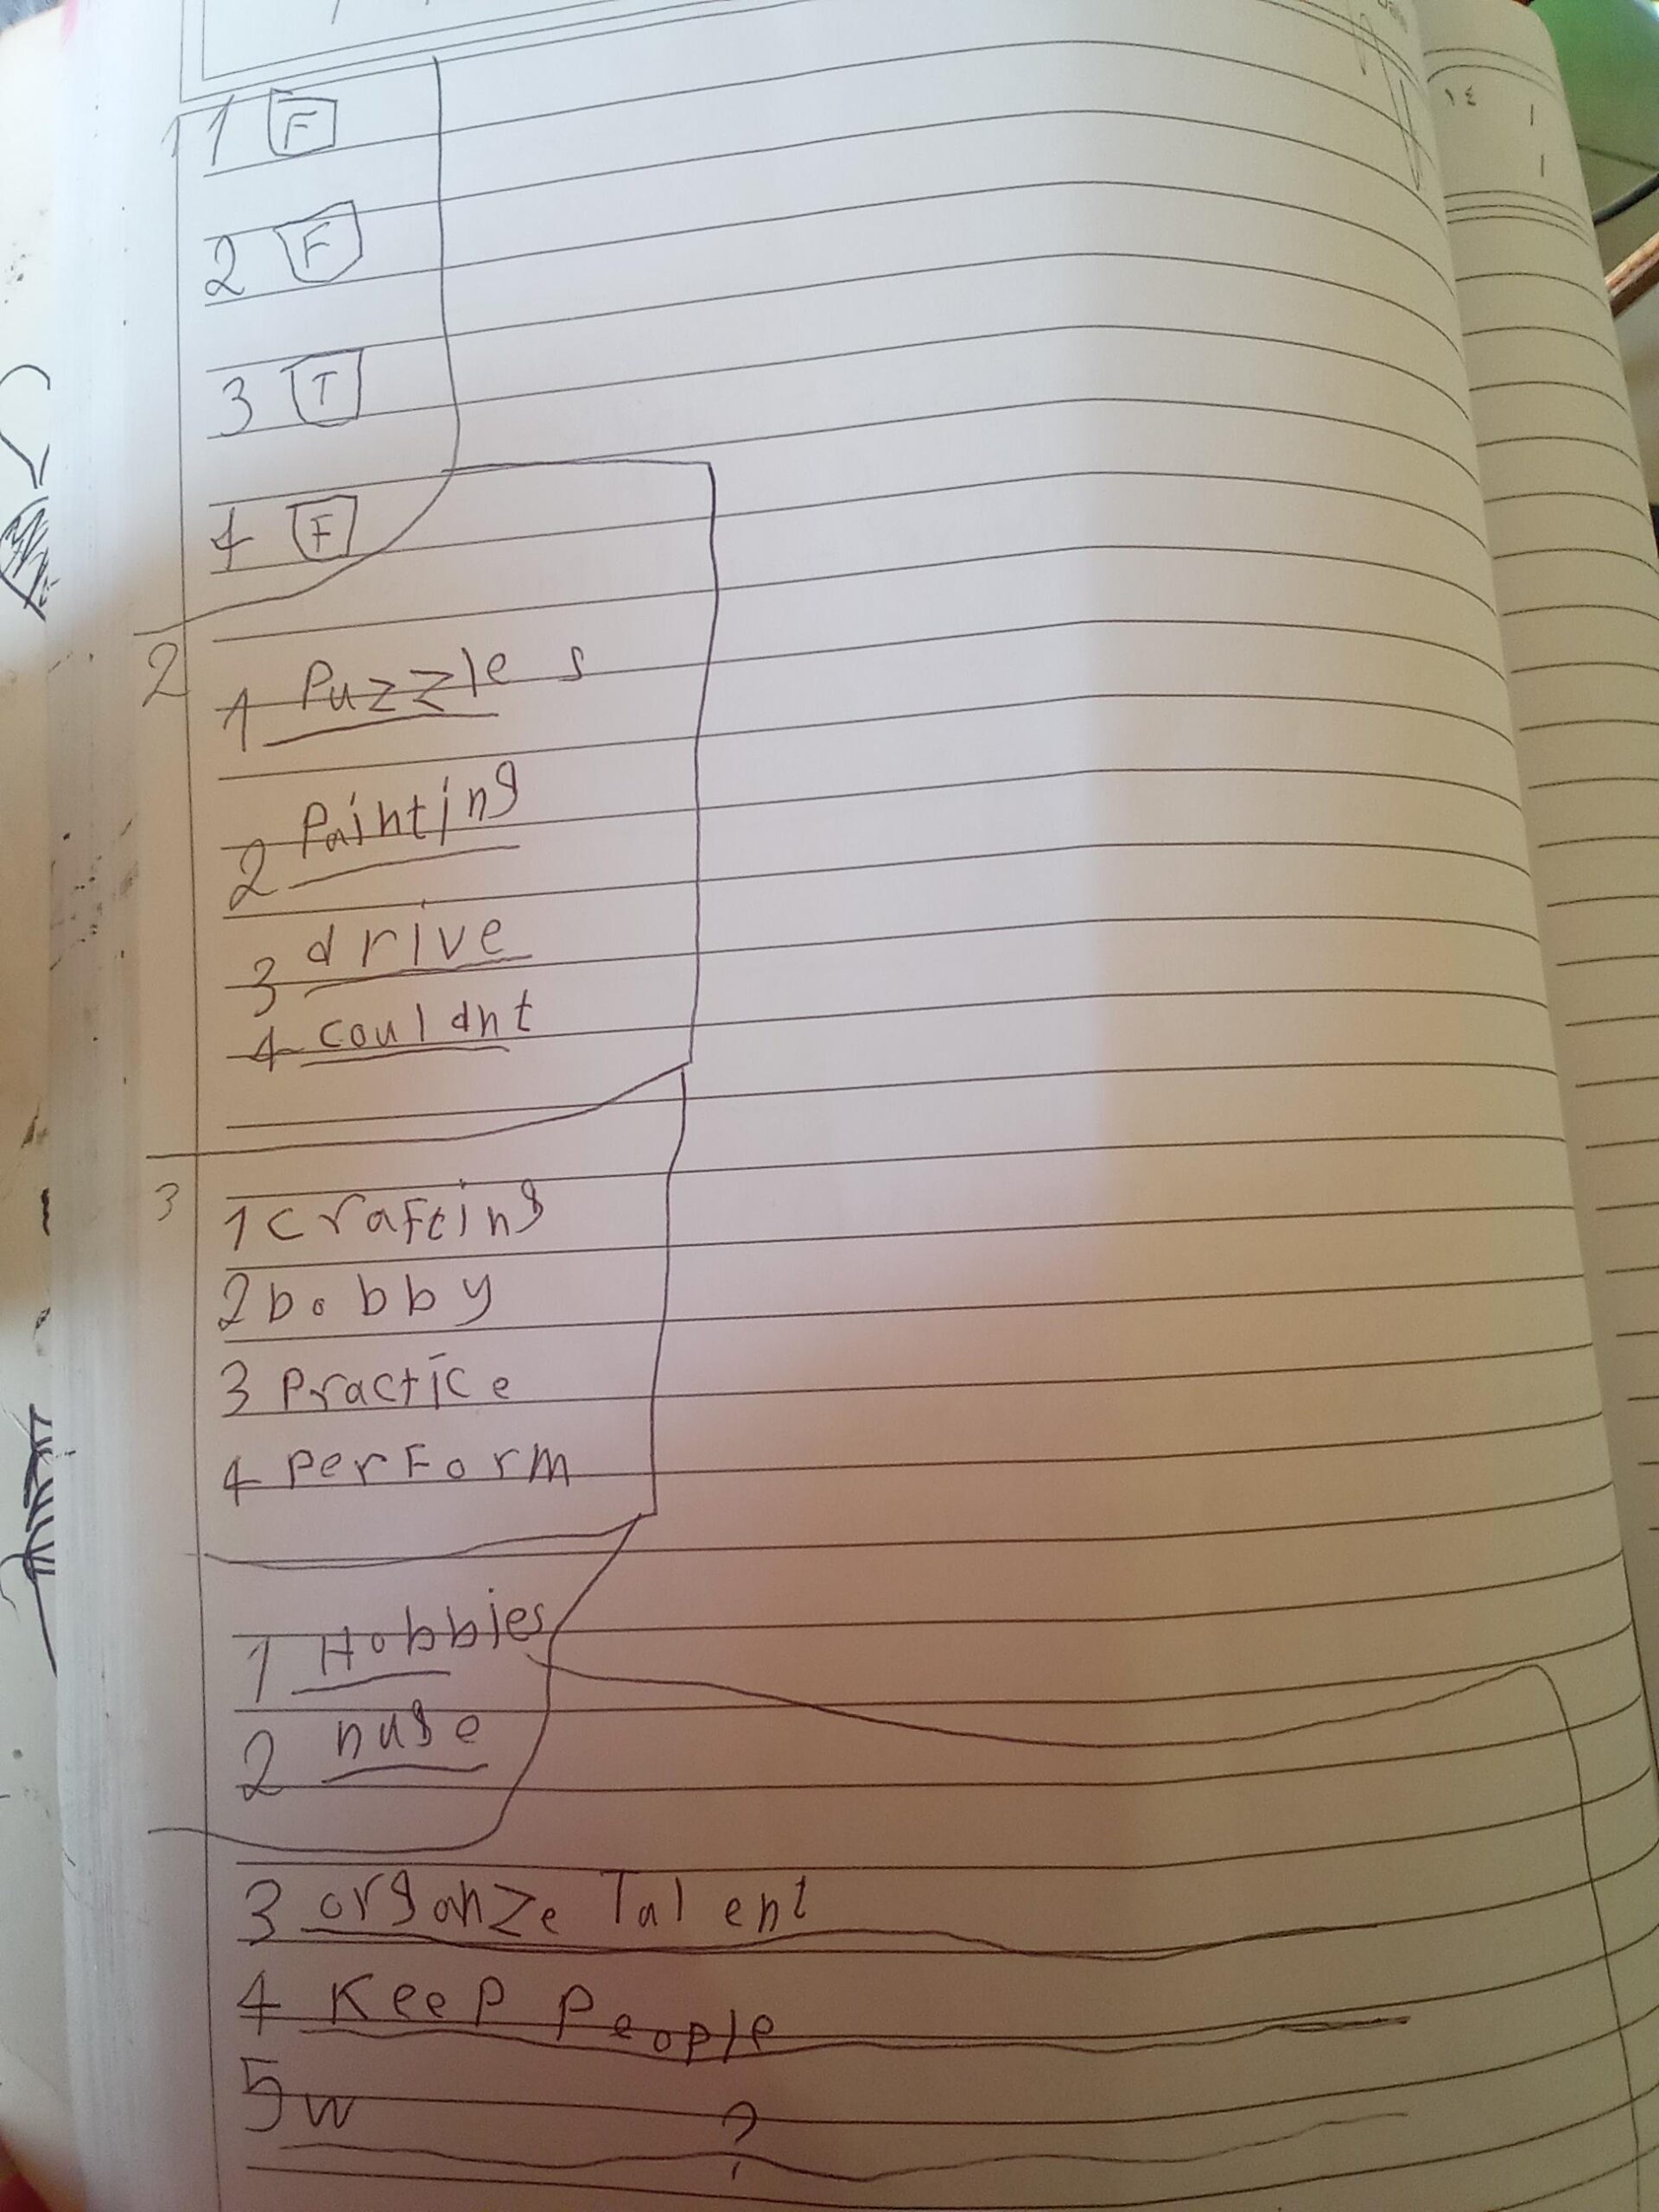 1 1 F
2 F
3 T
4 F
2
1 Puzzles
2 Painting
3 drive
4 couldnt
3
1 crafting
2 bobby
3 Practice
4 PerForm
1 Hobbies
2 nuge
3 organze Talent
4 Keep People
5 w ?
١٤